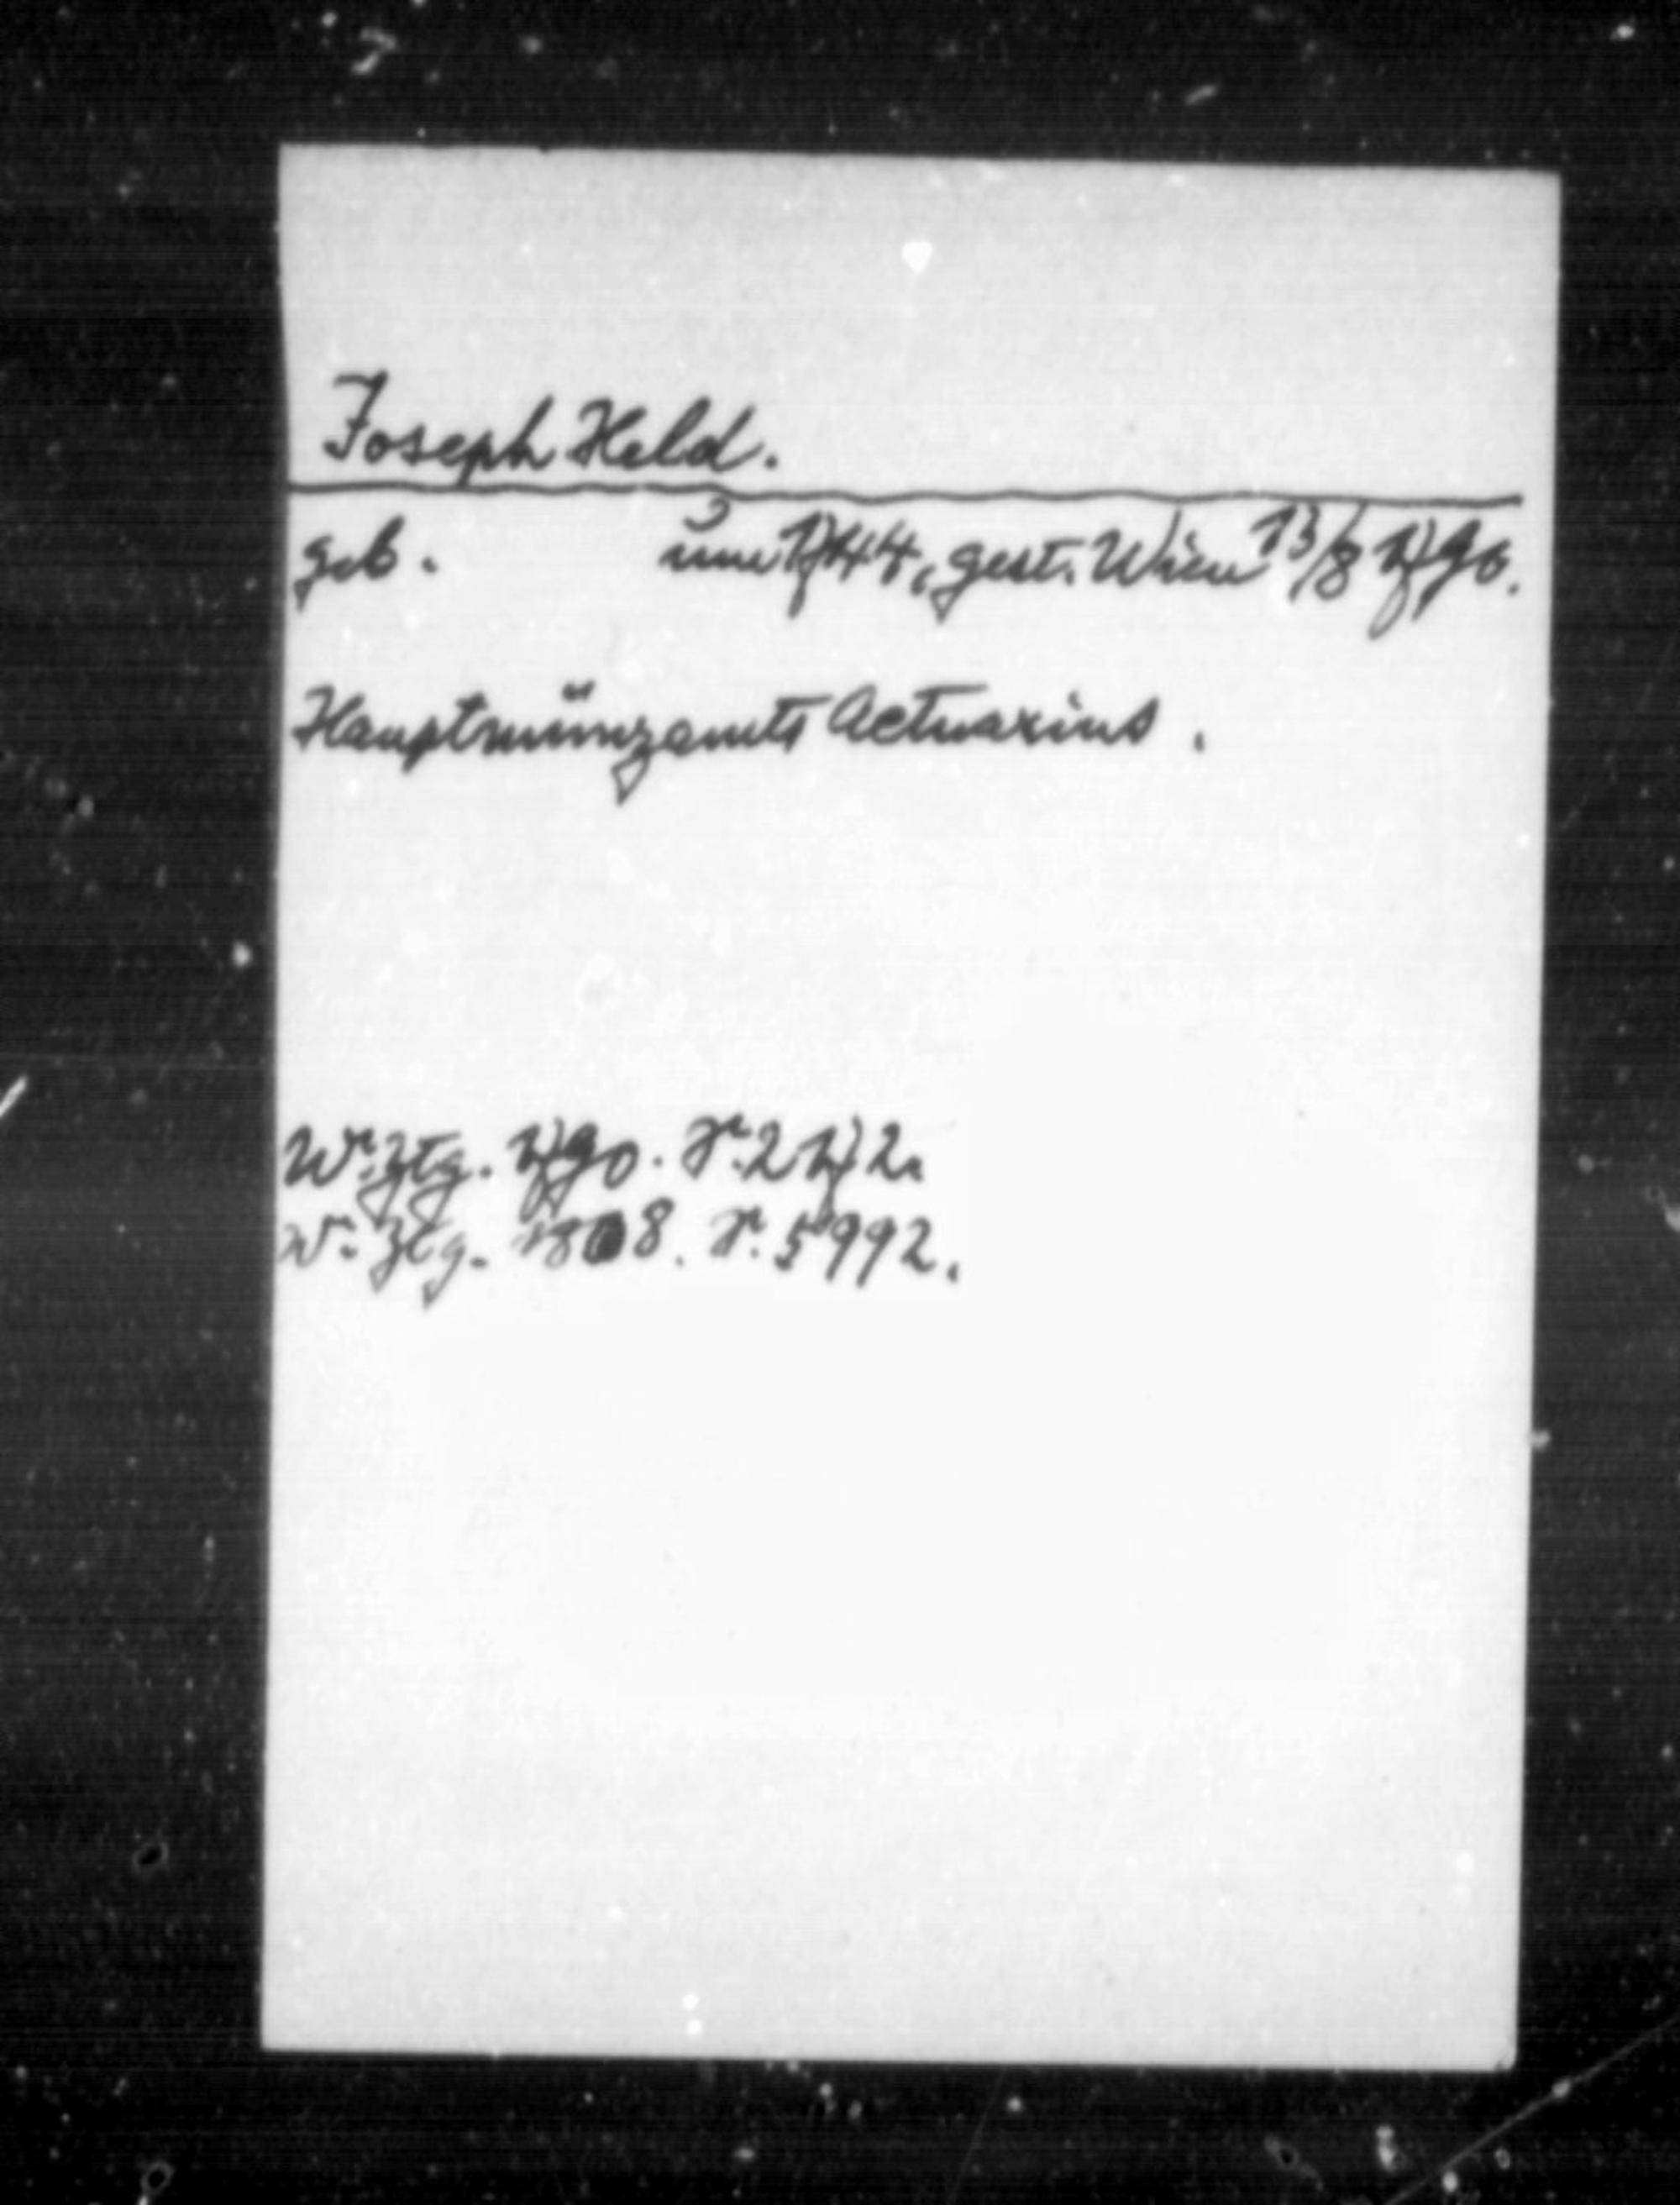 Joseph Held.
geb. um 1744, gest. Wien 13/8 1790.
Hauptmünzamts Actuarius.
Wr. Ztg. 1790. S. 2172.
Wr. Ztg. 1808. S. 5992.